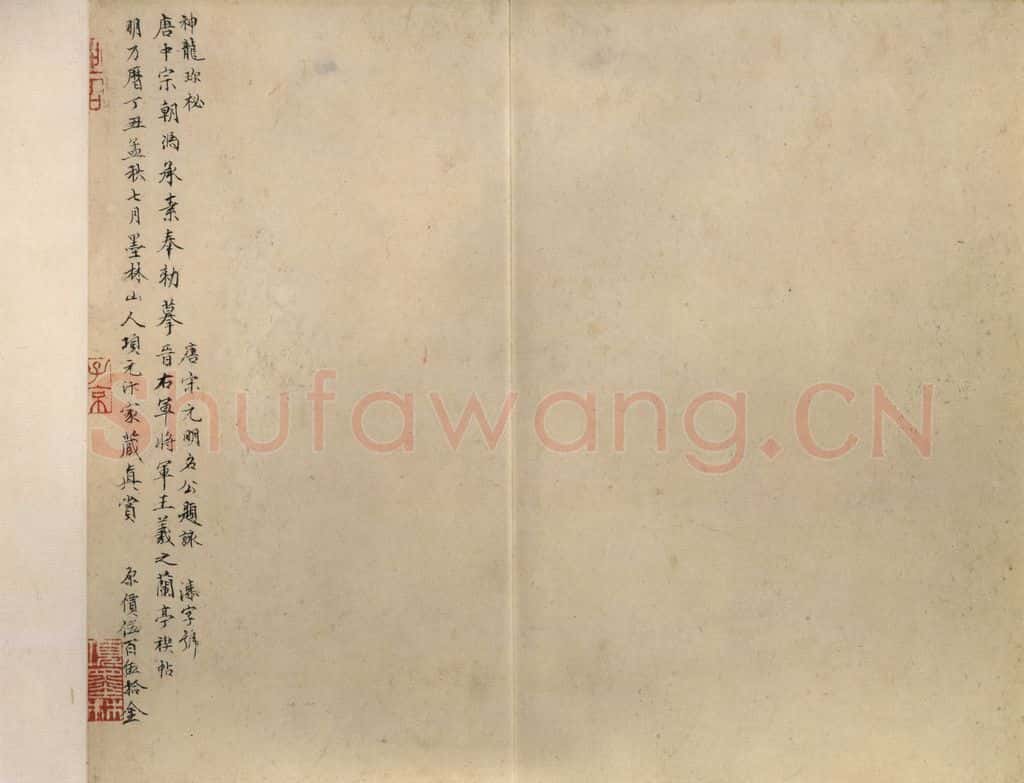 神龍珎秘
唐宋元明名公題詠
溱字號
唐中宗朝馮承素奉勑摹晉右軍將軍王羲之蘭亭禊帖
明万曆丁丑孟秋七月墨林山人項元汴家藏真賞
原價伍百伍拾金
子京
Shufawang.CN